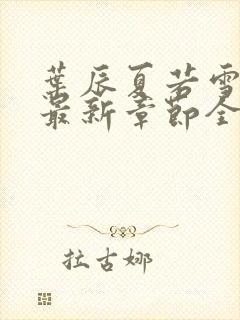 葉辰夏若雪
最新章節全
拉古娜